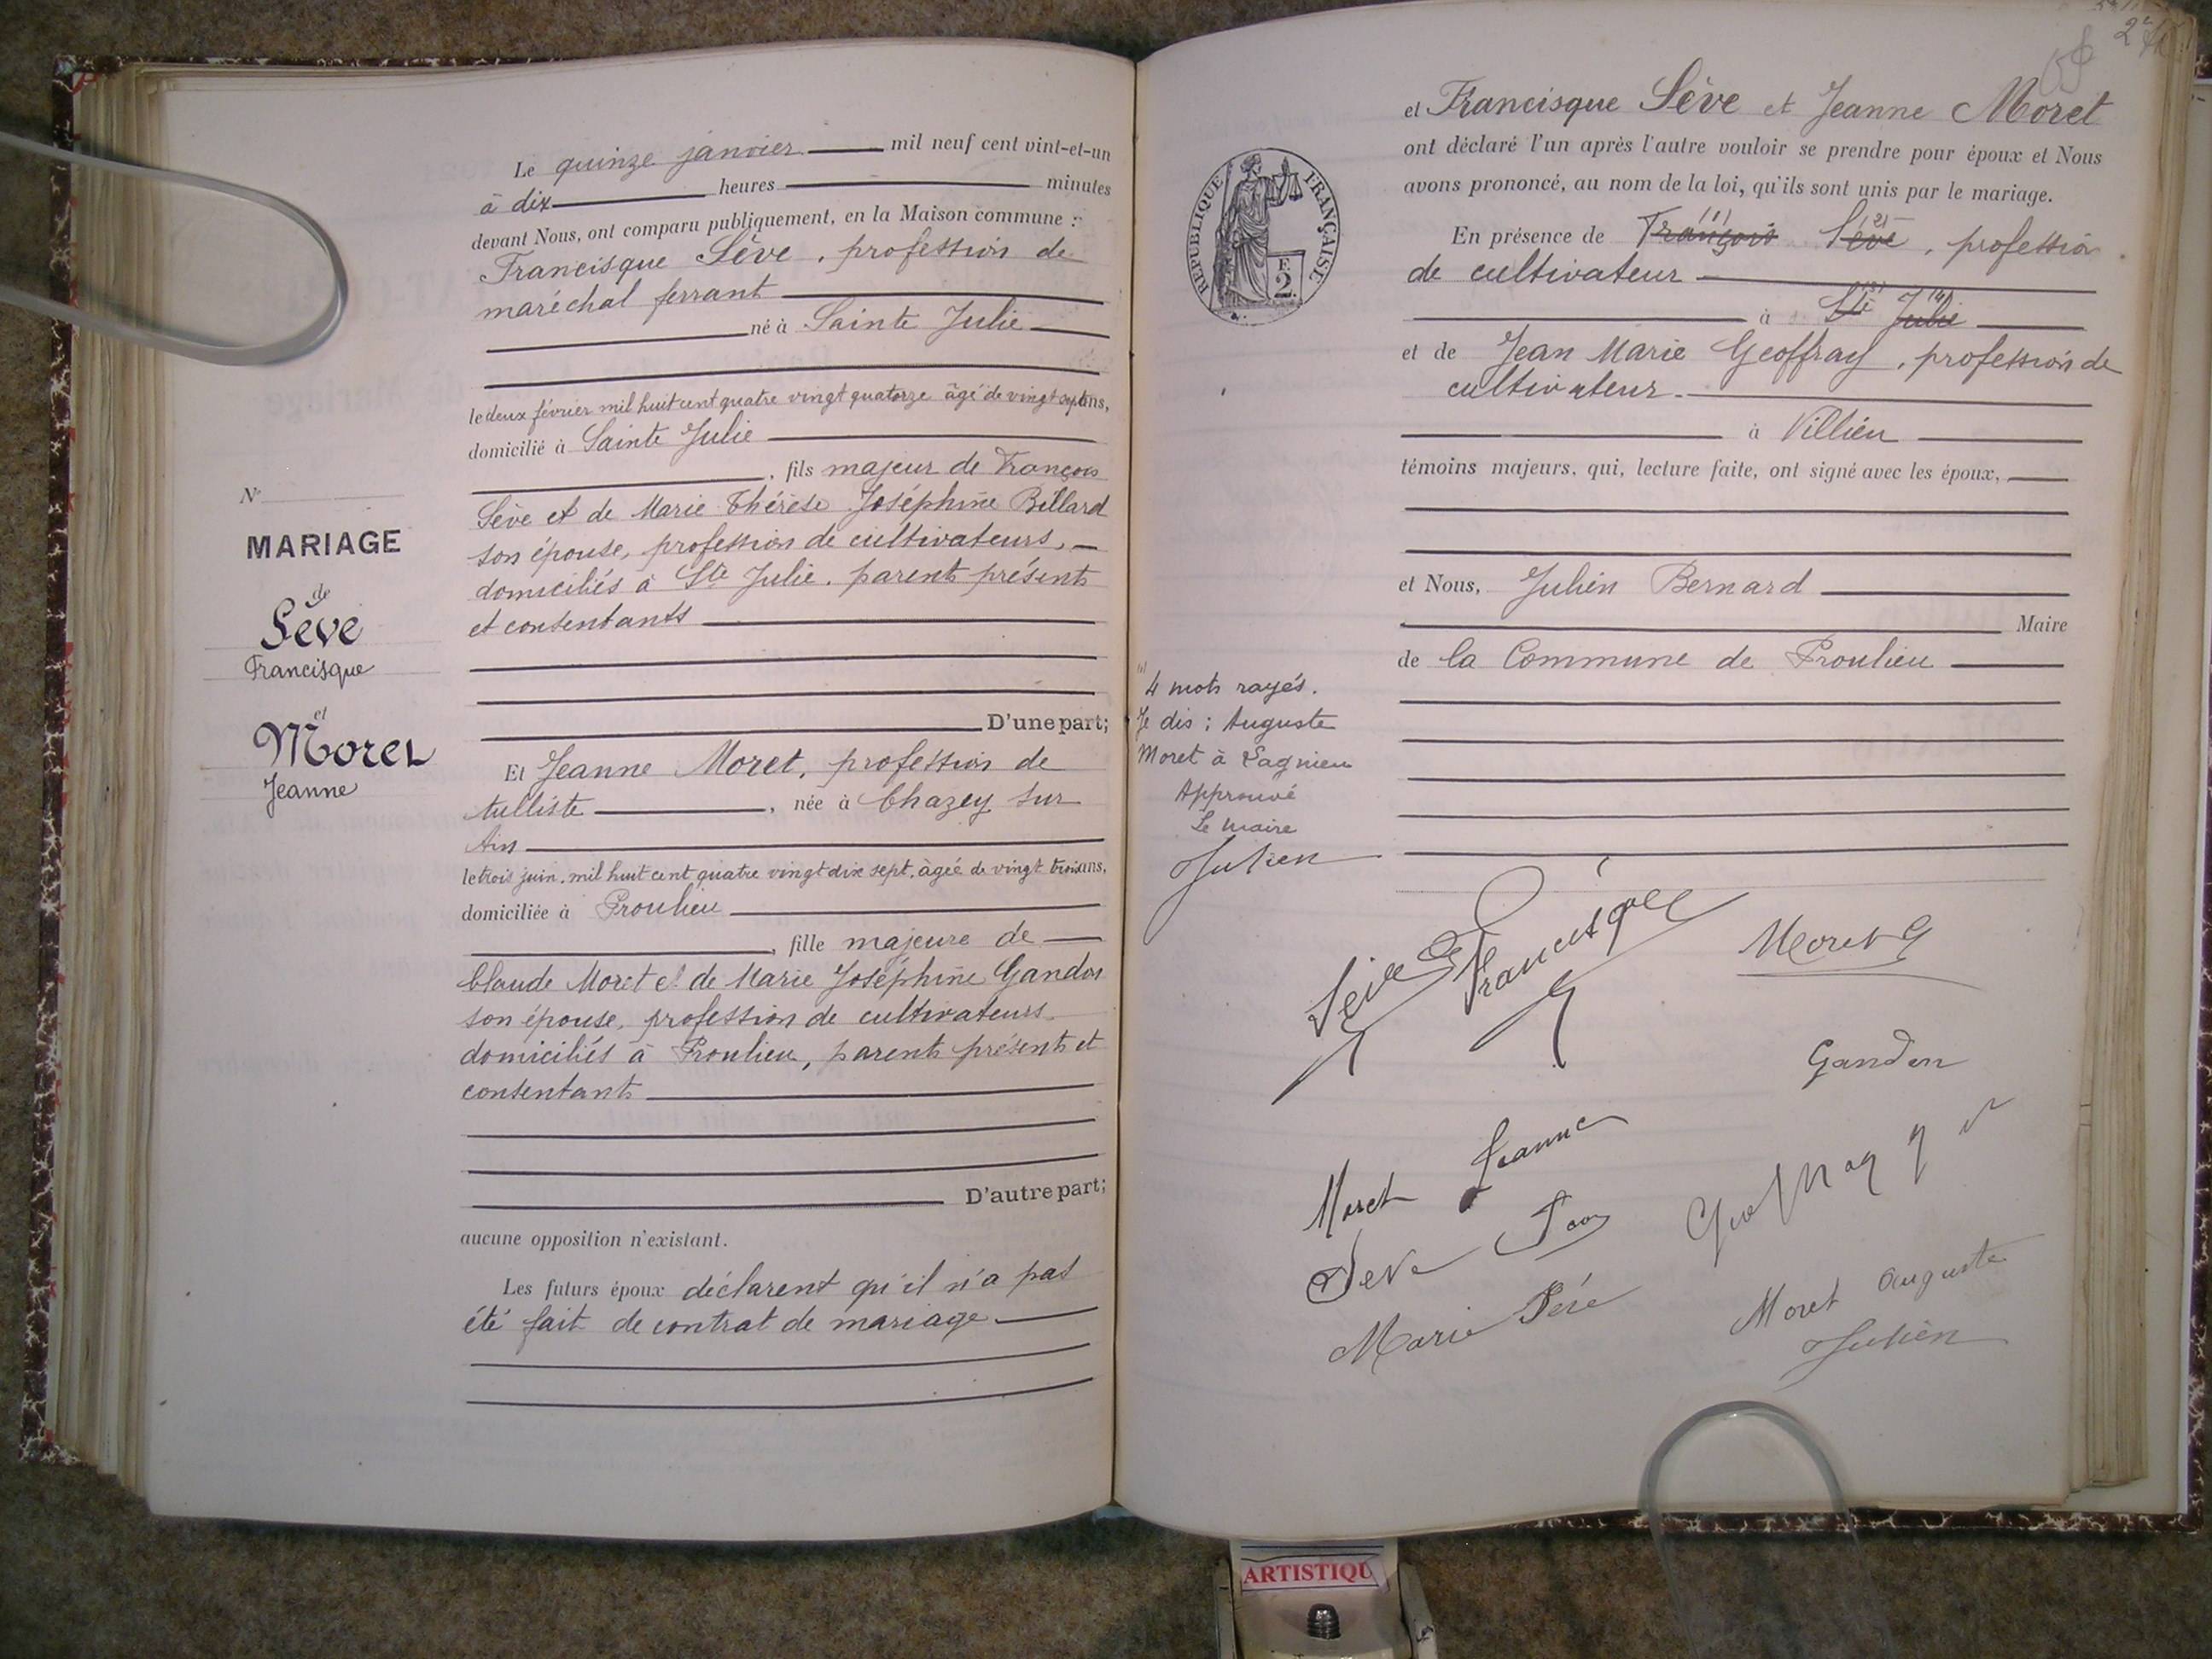 Le quinze janvier mil neuf cent vint-et-un
à dix heures minutes
devant Nous, ont comparu publiquement, en la Maison commune :
Francisque Sève, profession de
maréchal ferrant
né à Sainte Julie
le deux février mil huit cent quatre vingt quatorze âgé de vingt sept ans,
domicilié à Sainte Julie
, fils majeur de François
Sève et de Marie Thérèse Joséphine Billard
son épouse, profession de cultivateurs,
domiciliés à Ste Julie. parents présents
et consentants
N°
MARIAGE
de
Sève
Francisque
et
Moret
Jeanne
D'une part;
Et Jeanne Moret, profession de
tulliste, née à Chazey sur
Ain
le trois juin mil huit cent quatre vingt dix sept, âgée de vingt trois ans,
domiciliée à Proulieu
, fille majeure de
Claude Moret et de Marie Joséphine Gandon
son épouse, profession de cultivateurs
domiciliés à Proulieu, parents présents et
consentants
D'autre part;
aucune opposition n'existant.
Les futurs époux déclarent qu'il n'a pas
été fait de contrat de mariage
et Francisque Sève et Jeanne Moret
ont déclaré l'un après l'autre vouloir se prendre pour époux et Nous
avons prononcé, au nom de la loi, qu'ils sont unis par le mariage.
RÉPUBLIQUE FRANÇAISE
F.
2
En présence de François (1) Sève (2), profession
de cultivateur
à Ste (3) Julie (4)
et de Jean Marie Geoffray, profession de
cultivateur
à Villieu
témoins majeurs, qui, lecture faite, ont signé avec les époux,
et Nous, Julien Bernard
Maire
de la Commune de Proulieu
(1)
4 mots rayés.
Je dis : Auguste
Moret à Lagnieu
Approuvé
Le maire
Julien
Sève Francisque
Moret
Gandon
Moret Jeanne
Seve
Marie
Moret Auguste
Julien
ARTISTIQU